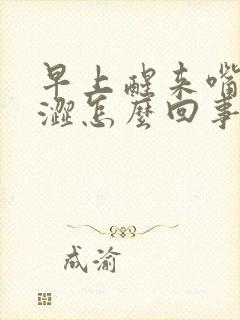 早上醒来嘴
澀怎麼回事
成渝